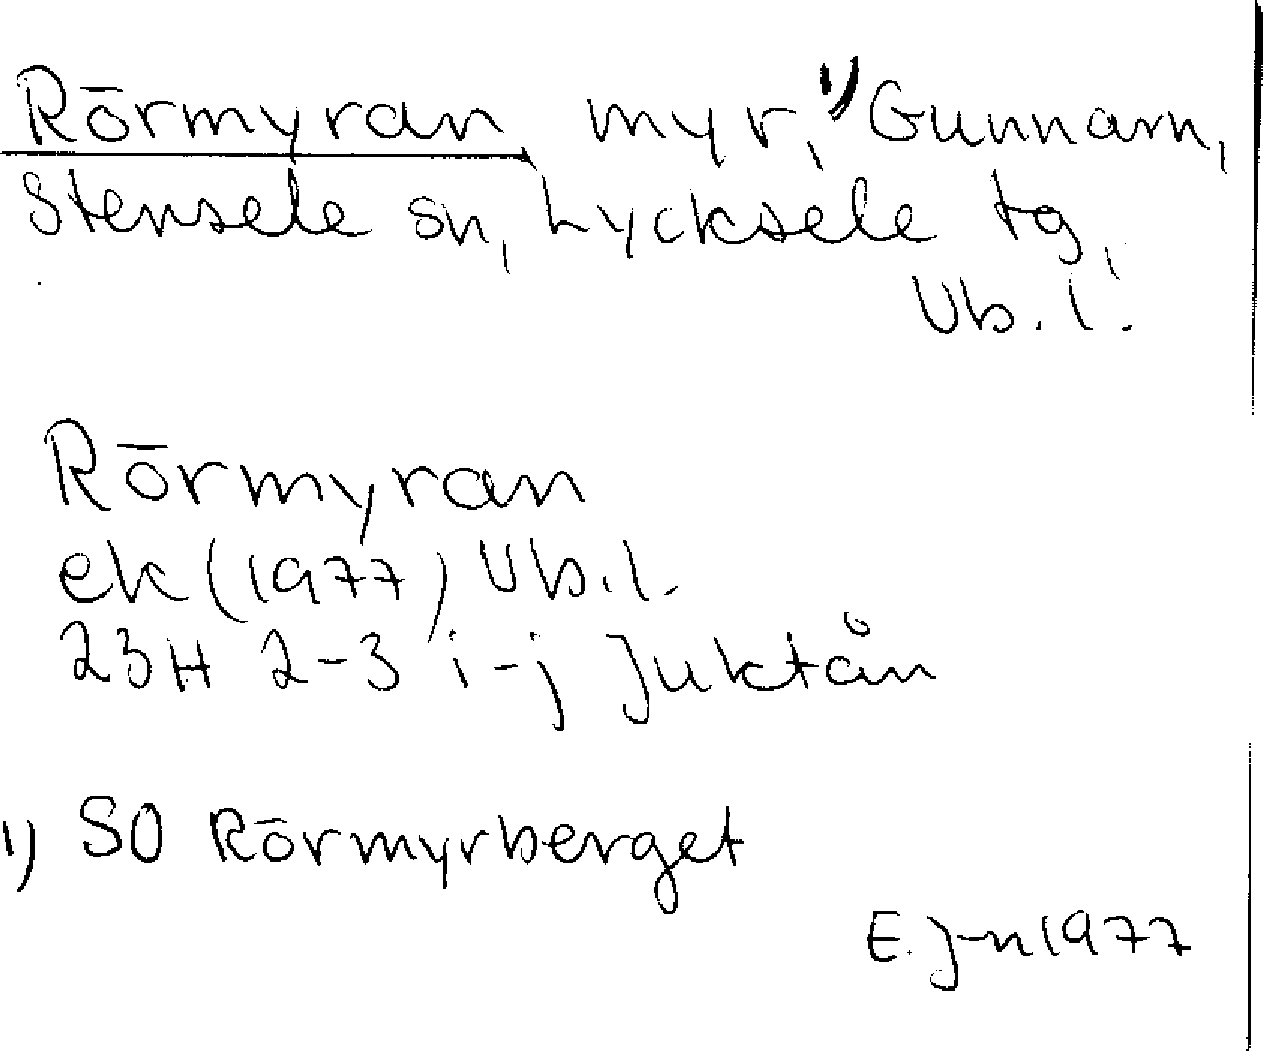 Rörmyran myr, 1) Gunnarn,
Stensele sn, Lycksele tg,
Vb. l.
Rörmyran
ek (1977) Vb. l.
23H 2-3 i-j Juktån
1) SO Rörmyrberget
E. J-n 1977